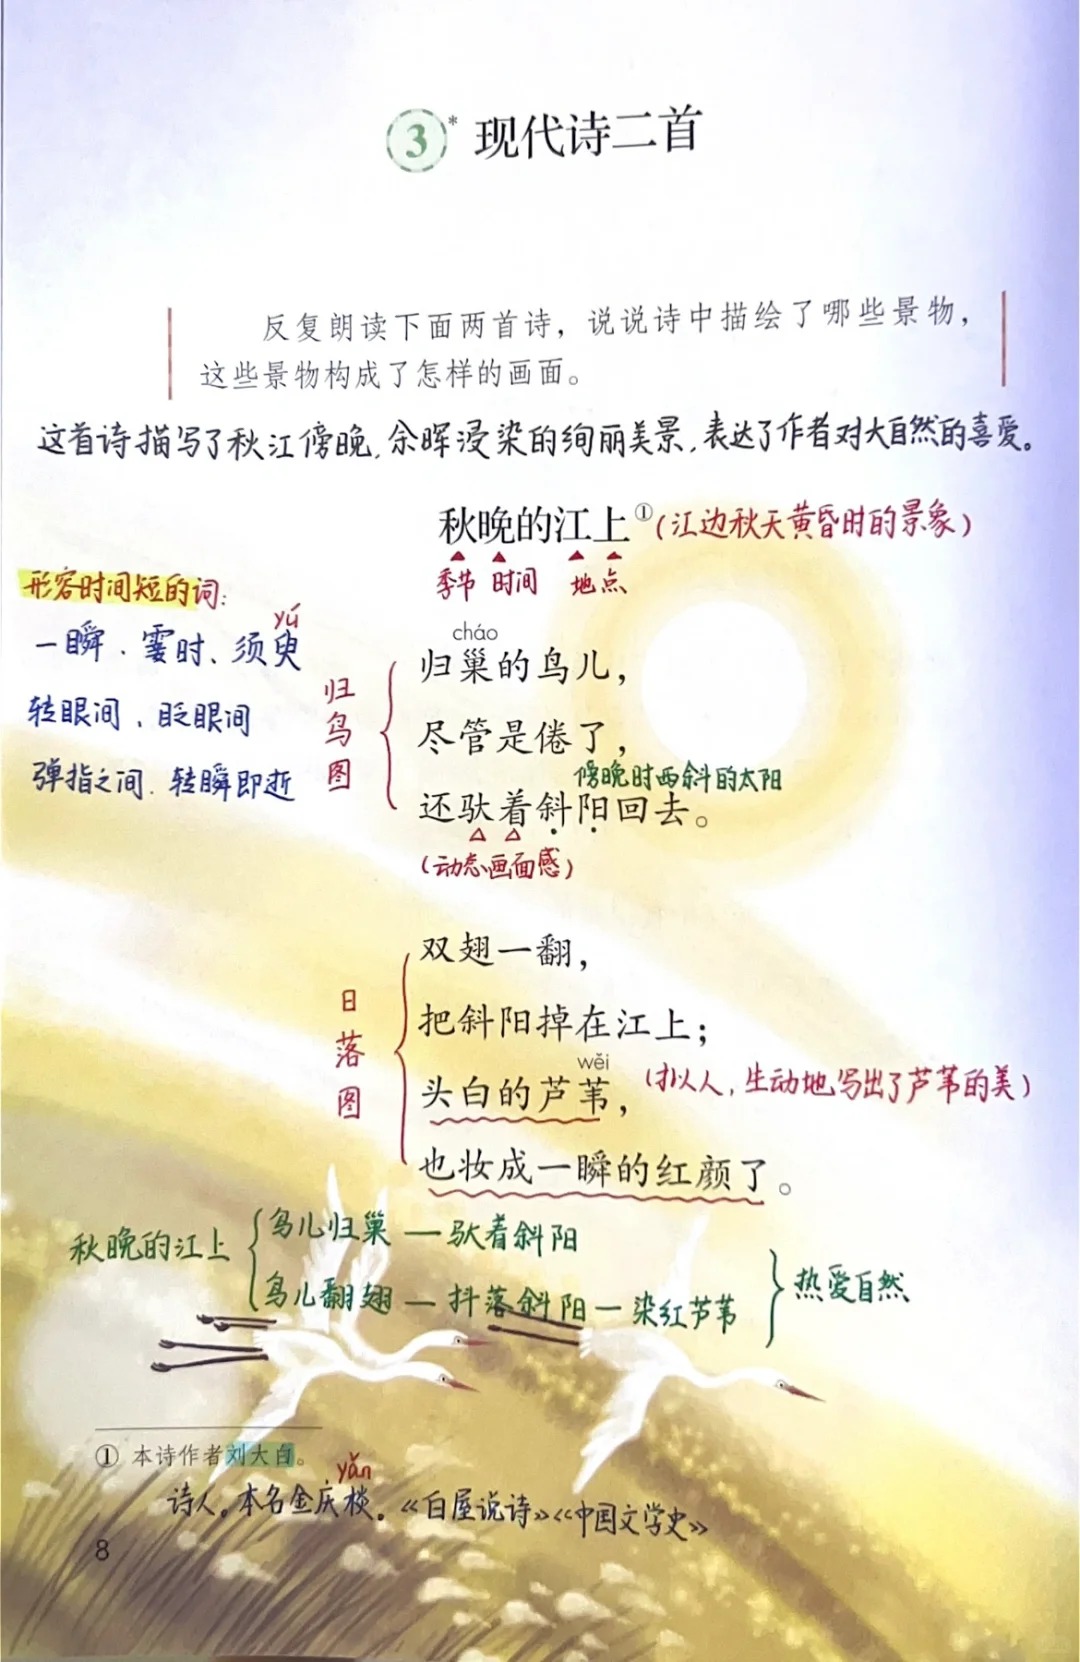 3* 现代诗二首
反复朗读下面两首诗，说说诗中描绘了哪些景物，
这些景物构成了怎样的画面。
这首诗描写了秋江傍晚,余晖浸染的绚丽美景,表达了作者对大自然的喜爱。
秋晚的江上①(江边秋天黄昏时的景象)
季节 时间 地点
形容时间短的词:
yú
一瞬、霎时、须臾
转眼间、眨眼间
弹指之间、转瞬即逝
归鸟图
cháo
归巢的鸟儿，
尽管是倦了，
傍晚时西斜的太阳
还驮着斜阳回去。
(动态画面感)
日落图
双翅一翻，
把斜阳掉在江上；
wěi
头白的芦苇， (拟人,生动地写出了芦苇的美)
也妆成一瞬的红颜了。
秋晚的江上
鸟儿归巢—驮着斜阳
鸟儿翻翅—抖落斜阳—染红芦苇
热爱自然
① 本诗作者刘大白。
yǎn
诗人。本名金庆棪。《白屋说诗》《中国文学史》
8